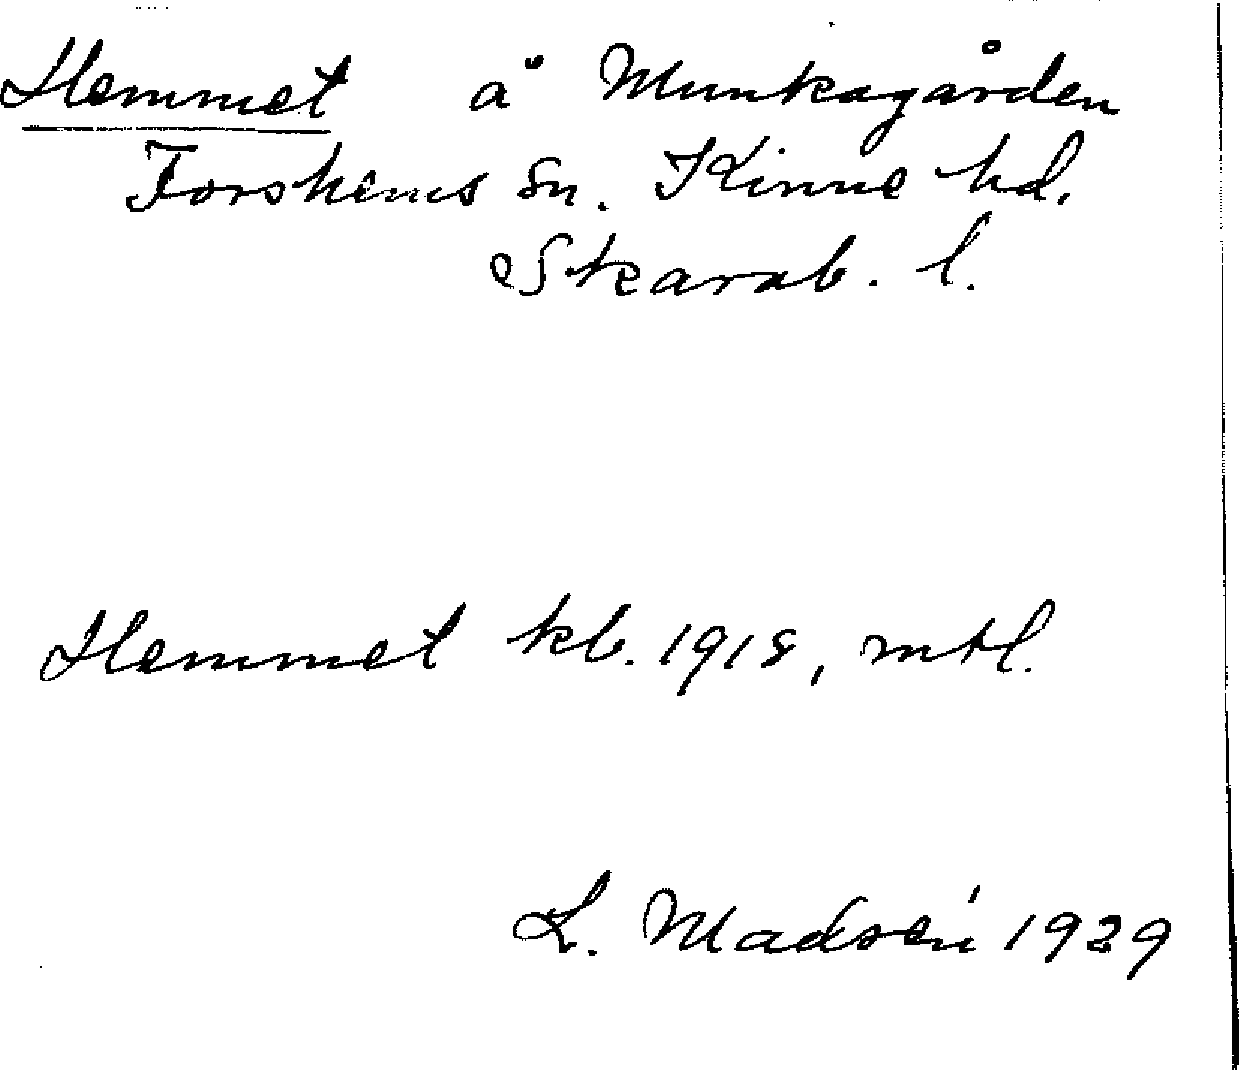 Hemmet å Munkagården
Forshems sn. Kinne hd.
Skarab. l.
Hemmet kb. 1918, mtl.
L. Madsén 1929